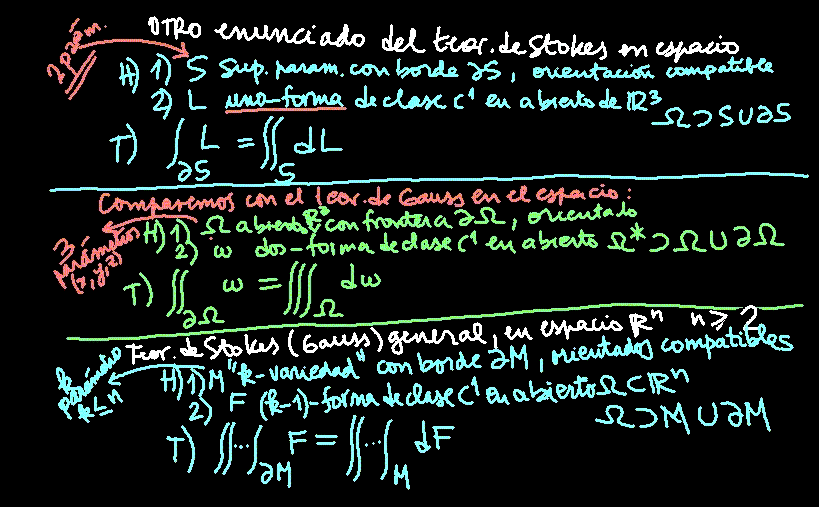 OTRO enunciado del teor. de Stokes en espacio
2 parám.
H) 1) S sup. param. con borde ∂S, orientación compatible
2) L uno-forma de clase C¹ en abierto de ℝ³ Ω⊃S∪∂S
T) ∫_∂S L = ∬_S dL
Comparemos con el teor. de Gauss en el espacio:
3-parámetros (x,y,z)
H) 1) Ω abierto ℝ³ con frontera ∂Ω, orientado
2) ω dos-forma de clase C¹ en abierto Ω* ⊃ Ω∪∂Ω
T) ∬_∂Ω ω = ∭_Ω dω
Teor. de Stokes (Gauss) general, en espacio ℝⁿ n ≥ 2
k parámetros k≤n
H) 1) M "k-variedad" con borde ∂M, orientados compatibles
2) F (k-1)-forma de clase C¹ en abierto Ω⊂ℝⁿ
Ω⊃M∪∂M
T) ∬…∫_∂M F = ∬…∫_M dF